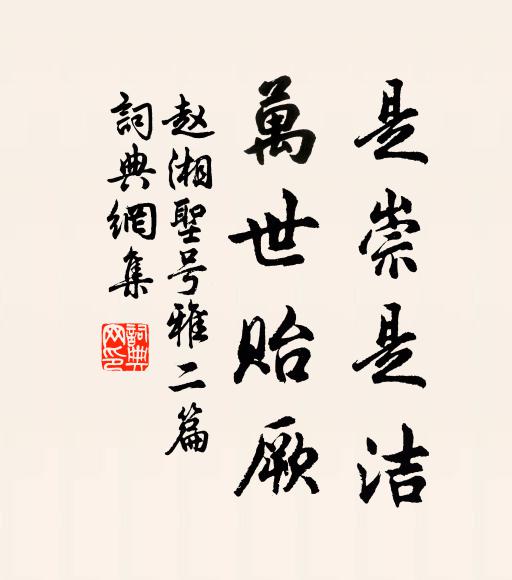 是崇是洁
萬世貽厥
赵湘聖号雅二篇
詞典網集
詞典网印